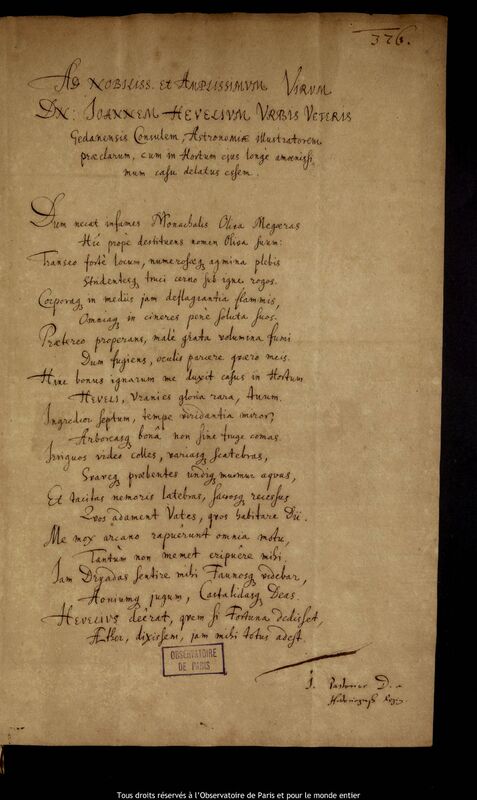 376.
AD NOBILISS. et AMPLISSIMVM VIRVM
DN: IOANNEM HEVELIVM VRBIS VETERIS
Gedanensis Consulem, Astronomiæ illustratorem
præclarum, cum in Hortum ejus longe amœnissi,
mum casu delatus essem.
Dum necat infames Monachalis Oliva Megæras
Hic prope destituens nomen Oliva suum:
Transeo fortè locum, numerosaq; agmina plebis
Studentesq; truci cerno sub igne rogos.
Corporaq; in mediis jam deflagrantia flammis,
Omniaq; in cineres penè soluta suos.
Prætereo properans, malè grata volumina fumi
Dum fugiens, oculis parcere quæro meis.
Hinc bonus ignarum me duxit casus in Hortum
HEVELI, Vranies gloria rara, tuum.
Ingredior septum, tempe viridantia miror,
Arboreasq; bonâ non sine fruge comas.
Irriguos video colles, variasq; scatebras,
Suaveq; præbentes undiq; murmur aquas,
Et tacitas nemoris latebras, sacrosq; recessus
Qvos adament Vates, qvos habitare Dii.
Me mox arcano rapuerunt omnia motu,
Tantùm non memet eripuêre mihi.
Jam Dryadas sentire mihi Faunosq; videbar,
Aoniumq; jugum, Castalidasq; Deas.
HEVELIVS deërat, qvem si Fortuna dedisset,
Æther, dixissem, jam mihi totus adest.
OBSERVATOIRE
DE PARIS
J. Pastorius D.
Historiograph. Regi
Tous droits réservés à l'Observatoire de Paris et pour le monde entier